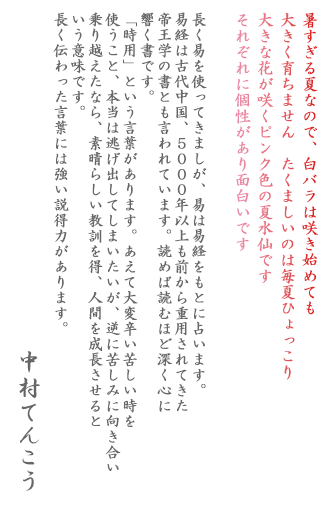 暑すぎる夏なので、白バラは咲き始めても
大きく育ちません　たくましいのは毎夏ひょっこり
大きな花が咲くピンク色の夏水仙です
それぞれに個性があり面白いです
長く易を使ってきましが、易は易経をもとに占います。
易経は古代中国、５０００年以上も前から重用されてきた
帝王学の書とも言われています。読めば読むほど深く心に
響く書です。
「時用」という言葉があります。あえて大変辛い苦しい時を
使うこと、本当は逃げ出してしまいたいが、逆に苦しみに向き合い
乗り越えたなら、素晴らしい教訓を得、人間を成長させると
いう意味です。
長く伝わった言葉には強い説得力があります。
中村てんこう